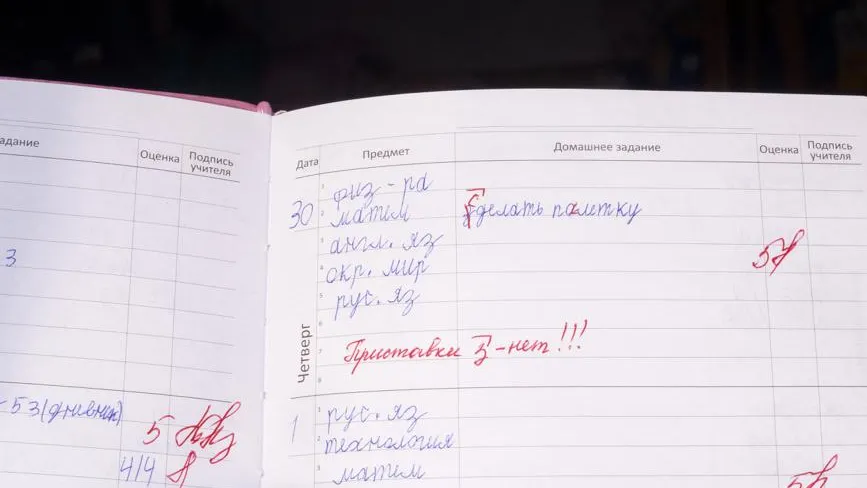 адание
Оценка
Подпись учителя
3
53 (дневник)
5
4/4
Дата
Предмет
Домашнее задание
Оценка
Подпись учителя
Четверг
30
1 физ-ра
2 матем
сделать палетку
3 англ. яз
4 окр. мир
5
5 рус. яз
6
7 Приставки з-нет!!!
8
1
1 рус. яз
2 технология
3 матем
5